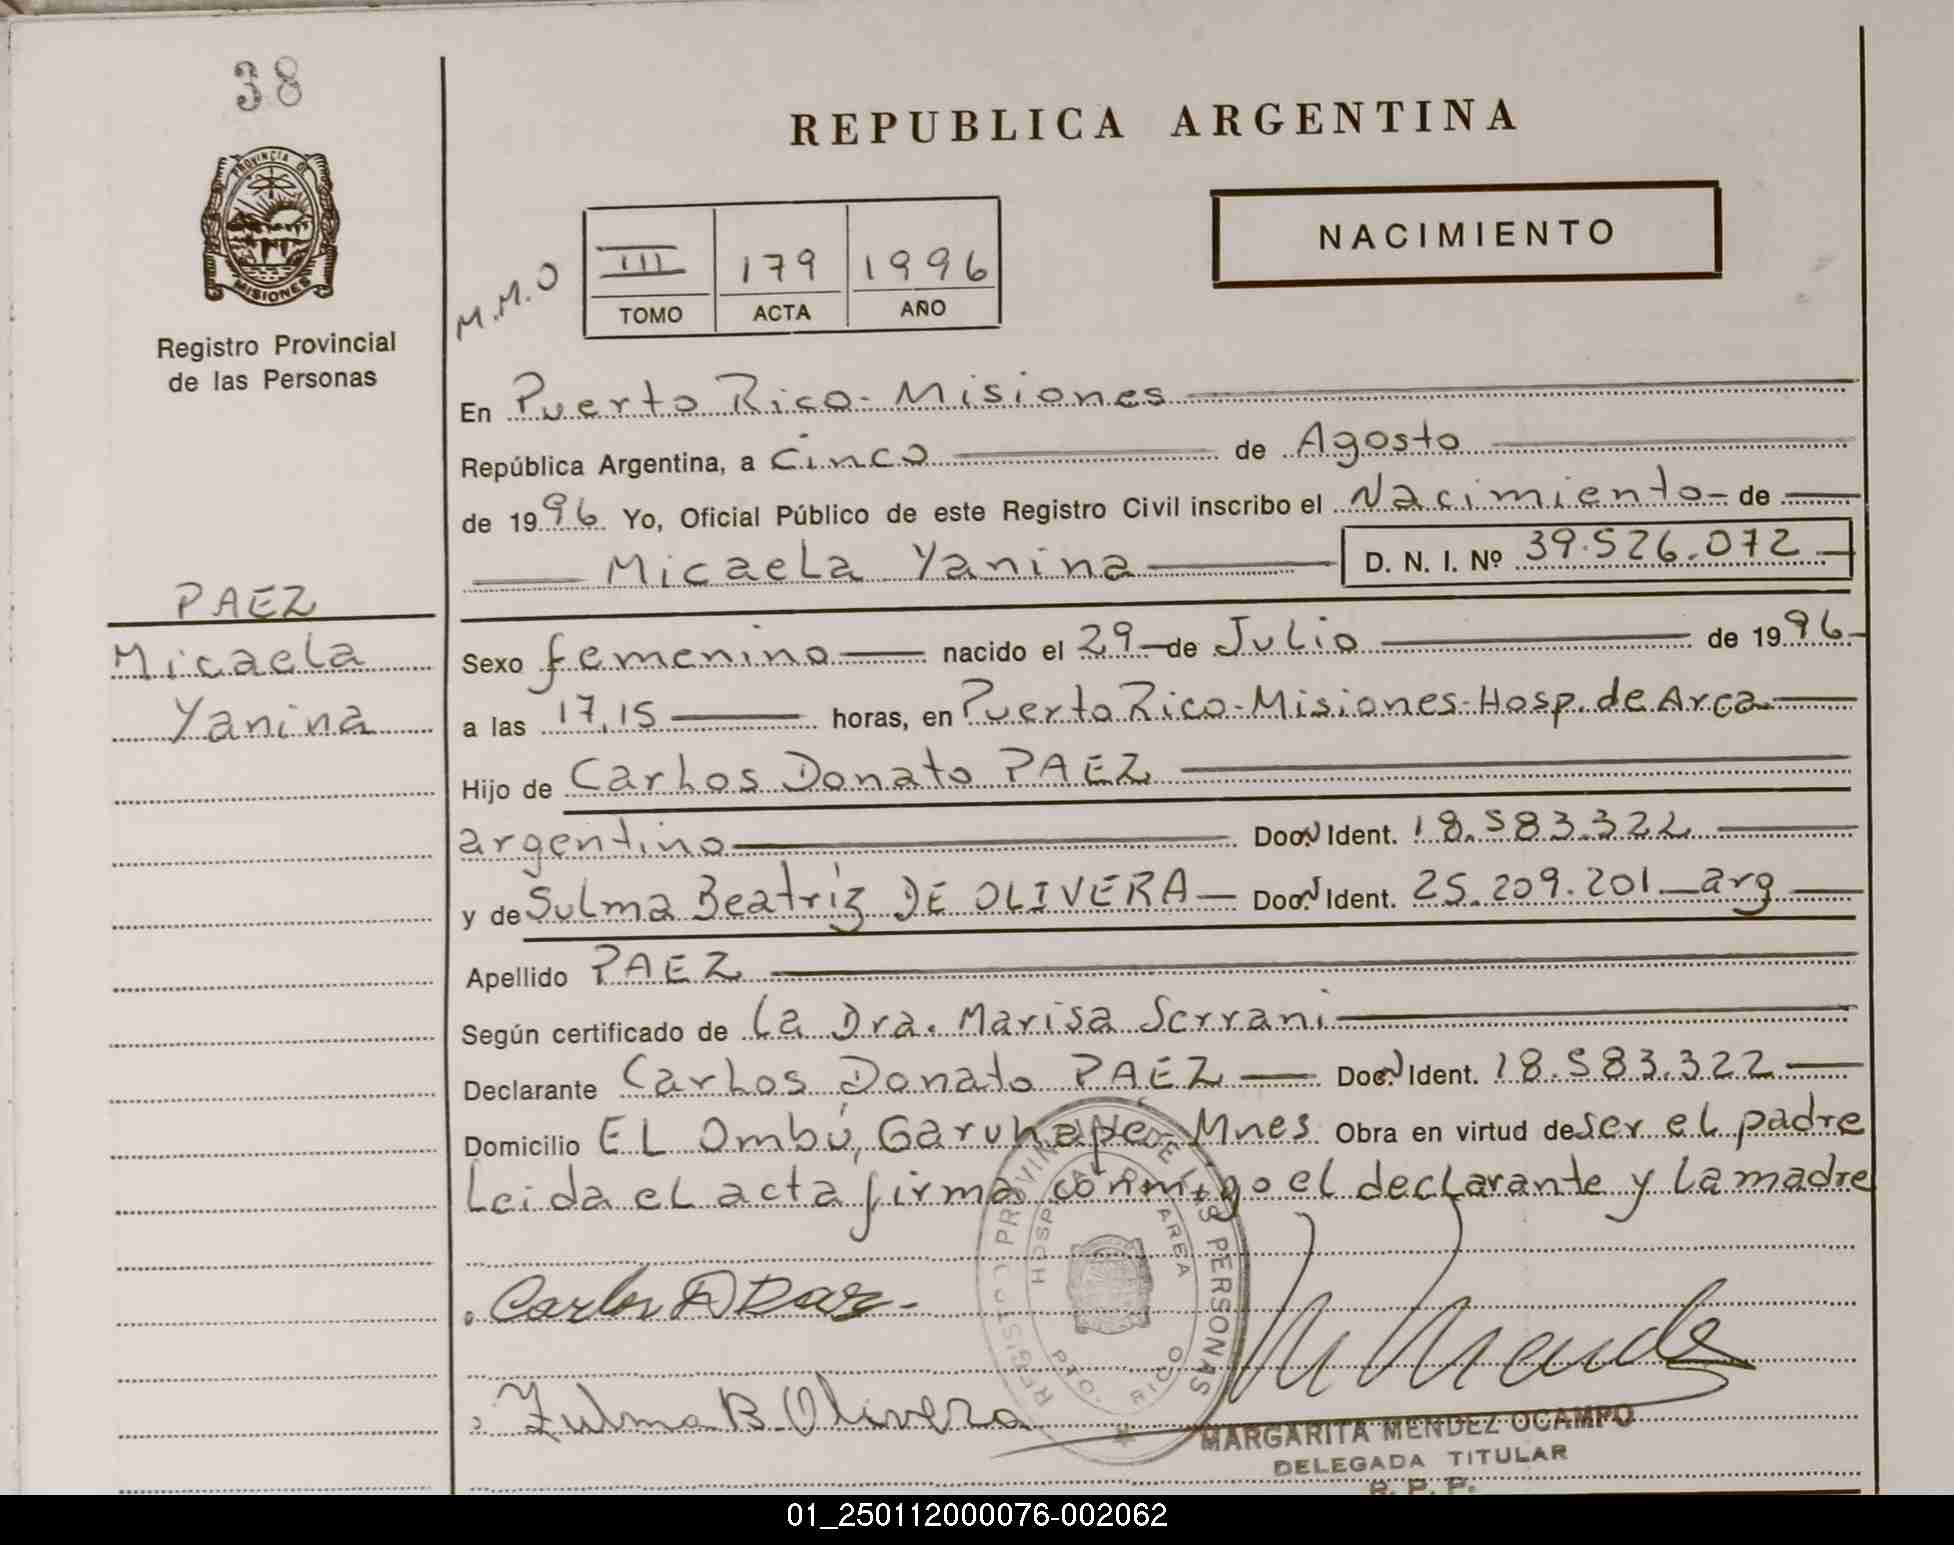 38
PROVINCIA DE
MISIONES
Registro Provincial
de las Personas
REPUBLICA ARGENTINA
NACIMIENTO
M.M.O
III 179 1996
TOMO ACTA AÑO
En Puerto Rico - Misiones
República Argentina, a cinco de Agosto
de 1996 Yo, Oficial Público de este Registro Civil inscribo el Nacimiento de
Micaela Yanina D. N. I. Nº 39.526.072
PAEZ
Micaela
Yanina
Sexo femenino nacido el 29 de Julio de 1996
a las 17,15 horas, en Puerto Rico - Misiones - Hosp. de Area
Hijo de Carlos Donato PAEZ
argentino Doc.N Ident. 18.583.322
y de Sulma Beatriz DE OLIVERA Doc.N Ident. 25.209.201 arg
Apellido PAEZ
Según certificado de la Dra. Marisa Serrani
Declarante Carlos Donato PAEZ Doc.N Ident. 18.583.322
Domicilio EL Ombú, Garuhapé - Mnes Obra en virtud de ser el padre
Leida el acta firma conmigo el declarante y la madre
REGISTRO PROVINCIAL DE LAS PERSONAS
HOSPITAL DE AREA
PTO. RICO
Carlos D Paez
Zulma B. Olivera
M Mendez
MARGARITA MENDEZ OCAMPO
DELEGADA TITULAR
R. P. P.
01_250112000076-002062